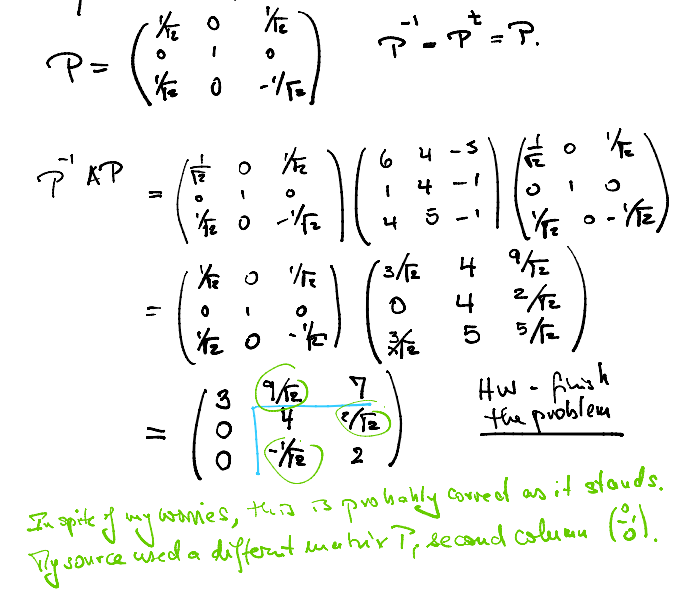 P = ( 1/√2 0 1/√2 ; 0 1 0 ; 1/√2 0 -1/√2 )    P⁻¹ = Pᵗ = P.
P⁻¹AP = ( 1/√2 0 1/√2 ; 0 1 0 ; 1/√2 0 -1/√2 ) ( 6 4 -3 ; 1 4 -1 ; 4 5 -1 ) ( 1/√2 0 1/√2 ; 0 1 0 ; 1/√2 0 -1/√2 )
= ( 1/√2 0 1/√2 ; 0 1 0 ; 1/√2 0 -1/√2 ) ( 3/√2 4 9/√2 ; 0 4 2/√2 ; 3/√2 5 5/√2 )
= ( 3 9/√2 7 ; 0 4 2/√2 ; 0 -1/√2 2 )
HW - finish
the problem
In spite of my worries, this is probably correct as it stands.
My source used a different matrix P, second column ( 0 ; -1 ; 0 ).